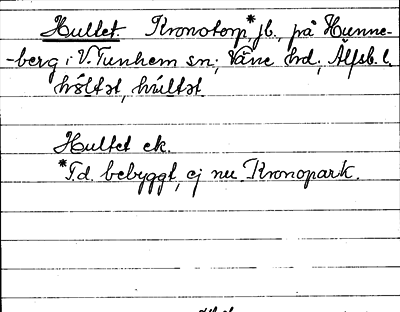 Hultet. Kronotorp*, jb., på Hunne-
-berg i V. Tunhem sn; Väne hd; Älfsb. l.
hşltət, húltət.
Hultet ek.
*T.d. bebyggt, ej nu Kronopark.